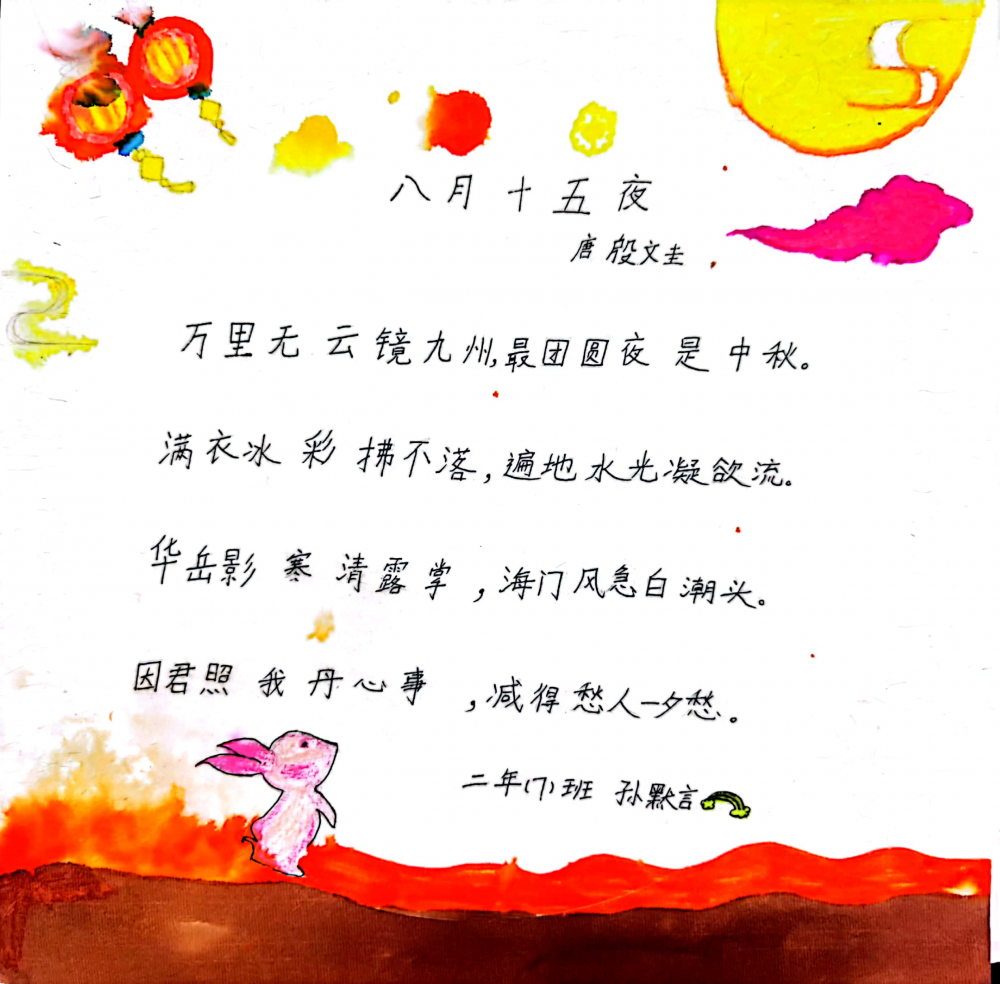 八月十五夜
唐 殷文圭
万里无云镜九州,最团圆夜是中秋。
满衣冰彩拂不落,遍地水光凝欲流。
华岳影寒清露掌,海门风急白潮头。
因君照我丹心事,减得愁人一夕愁。
二年(7)班 孙默言